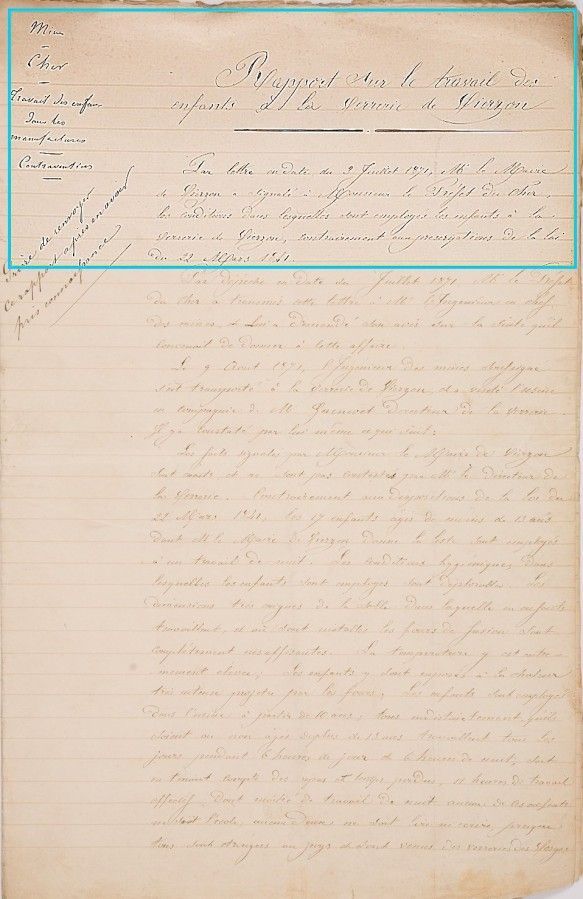 Mines
Cher
Travail des enfants
dans les
manufactures
Contraventions
Prière de renvoyer
ce rapport après en avoir
pris connaissance
Rapport sur le travail des
enfants à la Verrerie de Vierzon
Par lettre en date du 3 Juillet 1871, Mr le Maire
de Vierzon a signalé à Monsieur le Préfet du Cher,
les conditions dans lesquelles sont employés les enfants à la
verrerie de Vierzon, contrairement aux prescriptions de la loi
du 22 Mars 1841.
Par dépêche en date du Juillet 1871 Mr le Préfet
du Cher a transmis cette lettre à Mr l'Ingénieur en chef
des mines, et lui a demandé son avis sur la suite qu'il
convenait de donner à cette affaire.
Le 9 Août 1871, l'Ingénieur des mines soussigné
s'est transporté à la verrerie de Vierzon, et a visité l'usine
en compagnie de Mr directeur de la verrerie.
Il y a constaté par lui même ce qui suit :
Les faits signalés par Monsieur le Maire de Vierzon
sont exacts, et ne sont pas contestés par Mr le directeur de
la verrerie. Contrairement aux dispositions de la loi du
22 Mars 1841, les 17 enfants âgés de moins de 13 ans
dont Mr le Maire de Vierzon donne la liste sont employés
à un travail de nuit. Les conditions hygiéniques dans
lesquelles les enfants sont employés sont déplorables. Les
dimensions très exigues de la salle dans laquelle ces enfants
travaillent, et où sont installés les fours de fusion sont
complètement insuffisantes. La température y est extrê-
mement élevée ; les enfants y sont exposés à la chaleur
très intense projetée par les fours. Les enfants sont employés
dans l'usine à partir de 10 ans ; tous indistinctement qu'ils
soient ou non âgés de plus de 13 ans travaillent tous les
jours pendant 6 heures de jour et 6 heures de nuit, soit
en tenant compte des repos et temps perdus, heures de travail
effectif, dont moitié de travail de nuit. Aucun de ces enfants
ne suit l'école, aucun d'eux ne sait lire ni écrire, presque
tous sont étrangers au pays et sont venus des verreries des Vosges